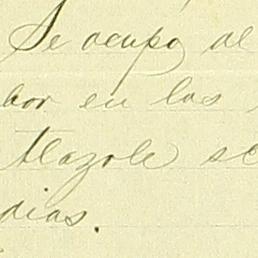 Se ocupo al
bor en las
tlazole se
dias.